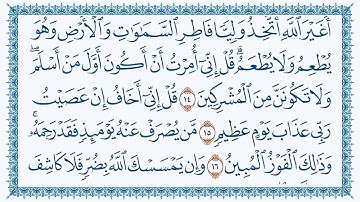 أَغَيْرَ ٱللَّهِ أَتَّخِذُ وَلِيًّا فَاطِرِ ٱلسَّمَٰوَٰتِ وَٱلْأَرْضِ وَهُوَ
يُطْعِمُ وَلَا يُطْعَمُ ۗ قُلْ إِنِّىٓ أُمِرْتُ أَنْ أَكُونَ أَوَّلَ مَنْ أَسْلَمَ ۖ
وَلَا تَكُونَنَّ مِنَ ٱلْمُشْرِكِينَ ١٤ قُلْ إِنِّىٓ أَخَافُ إِنْ عَصَيْتُ
رَبِّى عَذَابَ يَوْمٍ عَظِيمٍ ١٥ مَّن يُصْرَفْ عَنْهُ يَوْمَئِذٍ فَقَدْ رَحِمَهُۥ ۚ
وَذَٰلِكَ ٱلْفَوْزُ ٱلْمُبِينُ ١٦ وَإِن يَمْسَسْكَ ٱللَّهُ بِضُرٍّ فَلَا كَاشِفَ